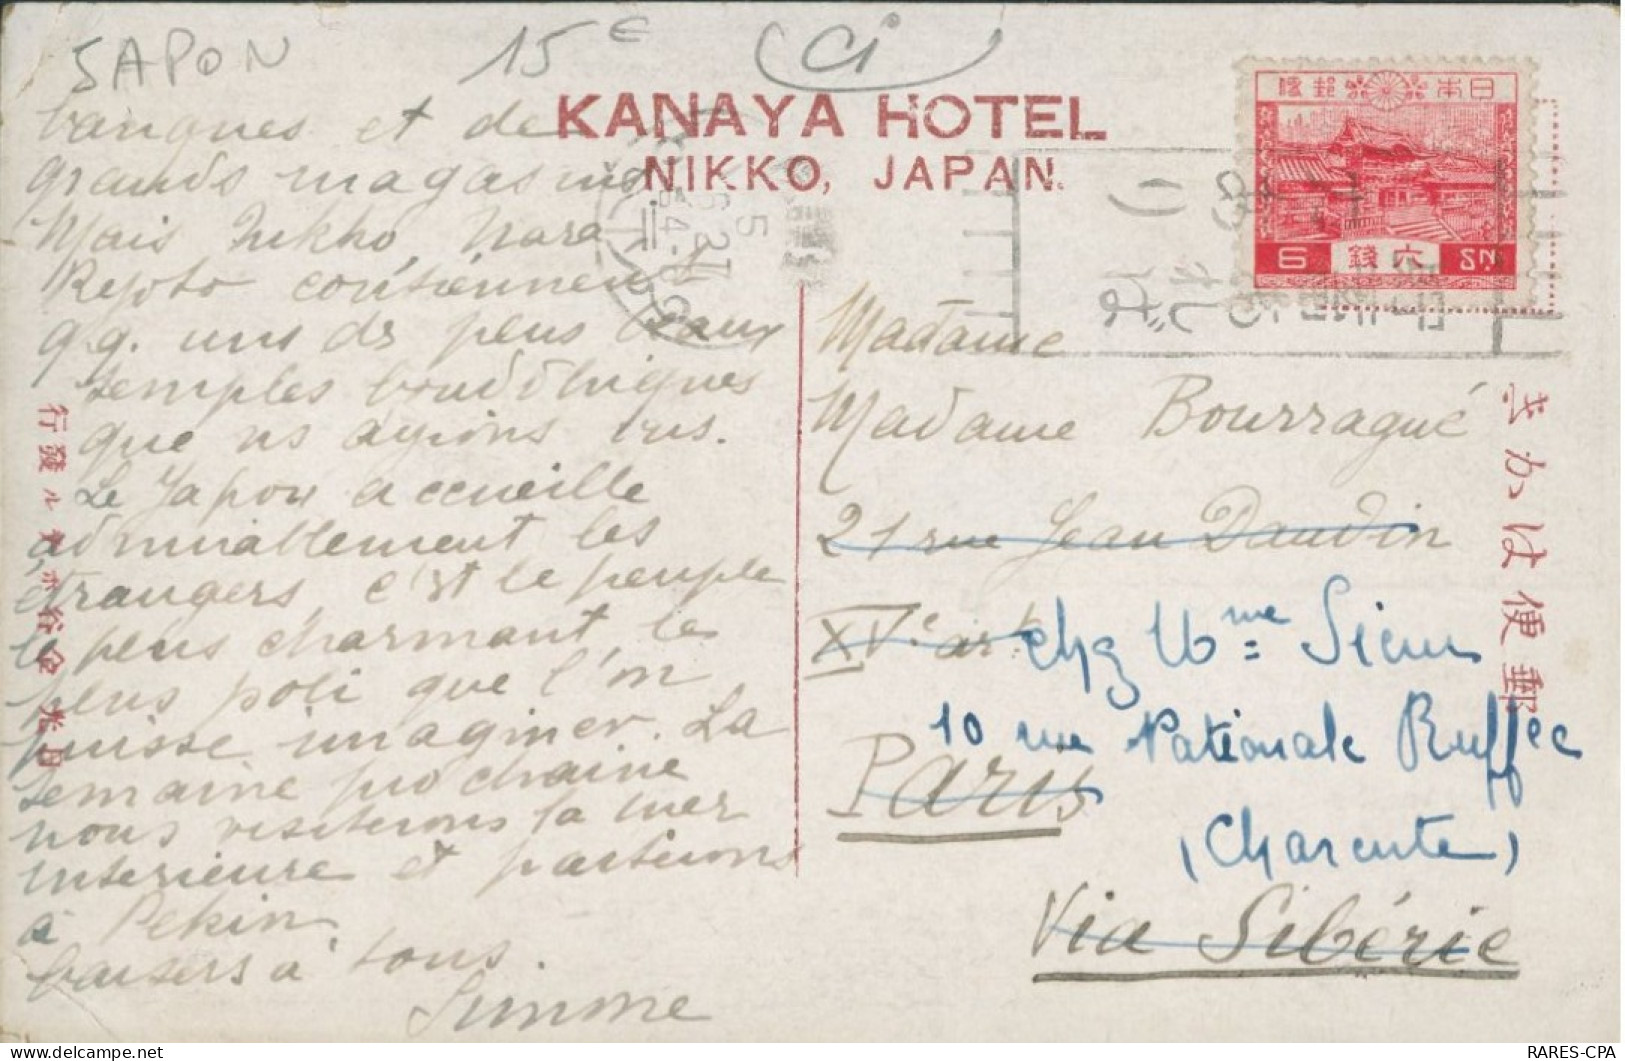 JAPON
15€
Ci
KANAYA HOTEL
NIKKO, JAPAN.
banques et de
grands magasins.
Mais Nikko, Nara
Kyoto contiennent
qq. uns des plus beaux
temples bouddhiques
que ns ayions vus.
Le Japon accueille
admirablement les
étrangers, c'est le peuple
le plus charmant, le
plus poli que l'on
puisse imaginer. La
semaine prochaine
nous visiterons la mer
interieure et partirons
à Pekin.
baisers à tous.
日本郵便
6 六錢 SN
Madame
Madame Bourragué
21 rue Jean Daudin
XVe arrt
Paris
chez Mme Sicur
10 rue Nationale Ruffec
(Charente)
Via Sibérie
郵便はかき
日光金谷ホテル發行
RARES-CPA